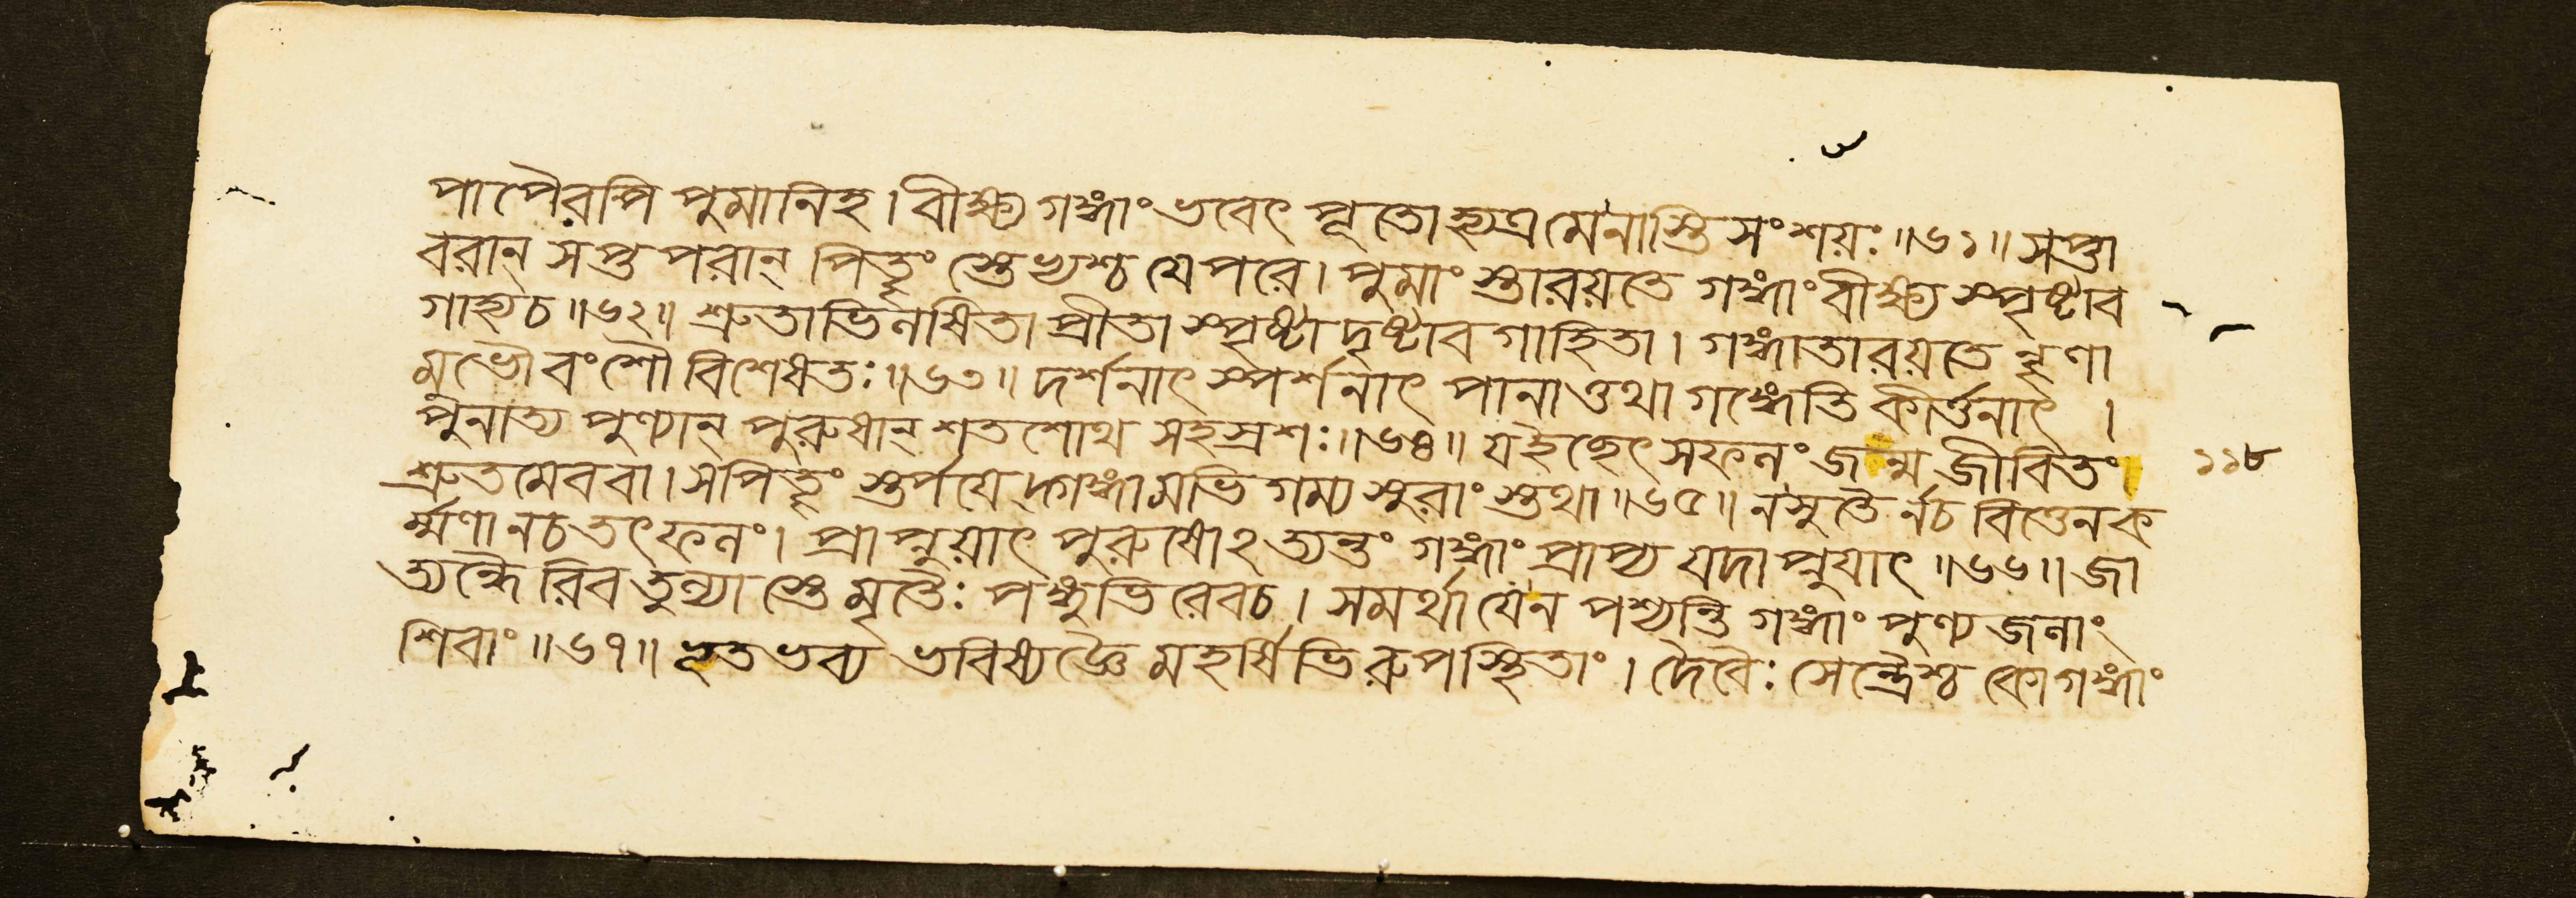 পাপৈরপি পুমানিহ। বীক্ষ্য গঙ্গাং ভবেৎ পূতো হ্যত্র মে নাস্তি সংশয়ঃ॥৬১॥ সপ্তা
বরান্ সপ্ত পরান্ পিতৄং স্তেভ্যশ্চ যে পরে। পুমাং স্তারয়তে গঙ্গাং বীক্ষ্য স্পৃষ্ট্বাব
গাহ্য চ॥৬২॥ শ্রুতাভিলষিতা প্রীতা স্পৃষ্টা দৃষ্টাবগাহিতা। গঙ্গা তারয়তে নৄণা
মুভৌ বংশৌ বিশেষতঃ॥৬৩॥ দর্শনাৎ স্পর্শনাৎ পানাত্তথা গঙ্গেতি কীর্ত্তনাৎ।
পুনাত্য পুণ্যান্ পুরুষান্ শতশোথ সহস্রশঃ॥৬৪॥ য ইচ্ছেৎ সফলং জন্ম জীবিতং
শ্রুতমেব বা। স পিতৄং স্তর্পযেদ্গঙ্গামভিগম্য সুরাং স্তথা॥৬৫॥ ন সুতৈর্নচ বিত্তেন ক
র্ম্মণা নচ তৎফলং। প্রাপ্নুয়াৎ পুরুষোঽত্যন্তং গঙ্গাং প্রাপ্য যদাপ্নুযাৎ॥৬৬॥ জা
ত্যন্ধৈরিব তুল্যাস্তে মৃতৈঃ পঙ্গুভিরেবচ। সমর্থা যে ন পশ্যন্তি গঙ্গাং পুণ্যজলাং
শিবাং॥৬৭॥ ভূতভব্য ভবিষ্যজ্ঞৈ মহর্ষিভিরুপস্থিতাং। দৈবৈঃ সেন্দ্রৈশ্চ কো গঙ্গাং
১১৮